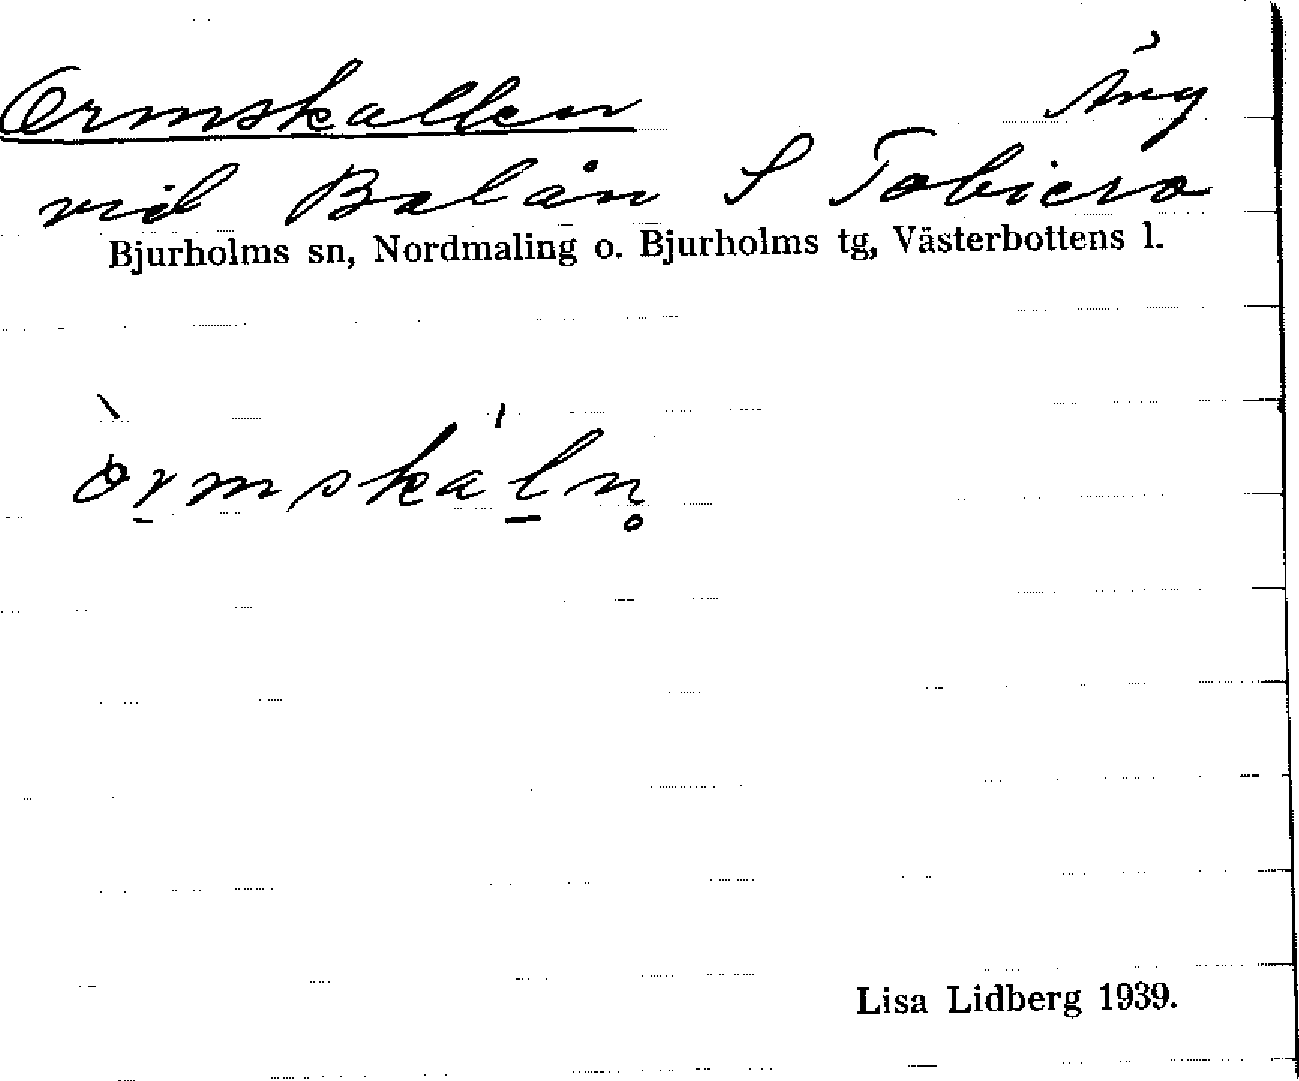 Ormskallen Äng
vid Balån S Tobiers
Bjurholms sn, Nordmaling o. Bjurholms tg, Västerbottens l.
òr̲mskál̲n̥
Lisa Lidberg 1939.